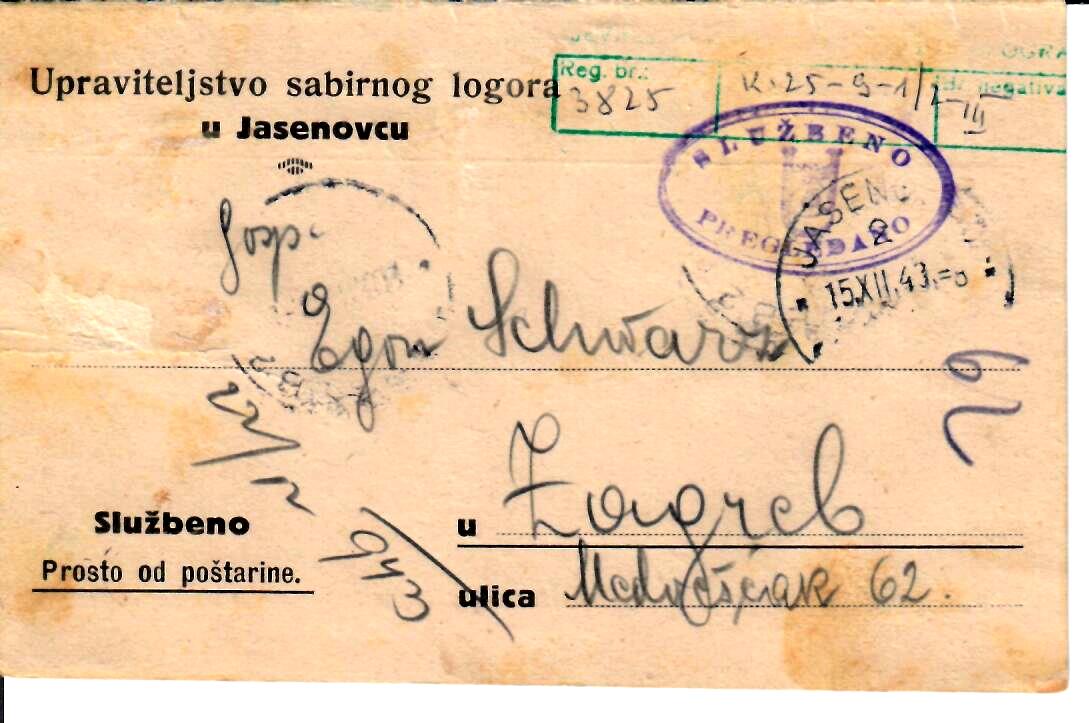 Upraviteljstvo sabirnog logora
u Jasenovcu
Reg. br.:
3825
K. 25-9-1/2-III
Br. negativa
SLUŽBENO
PREGLEDANO
15.XII.43.-8
Gosp.
Egon Schwarz
62
22/12
943
Službeno
Prosto od poštarine.
u Zagreb
ulica Medvešćak 62.